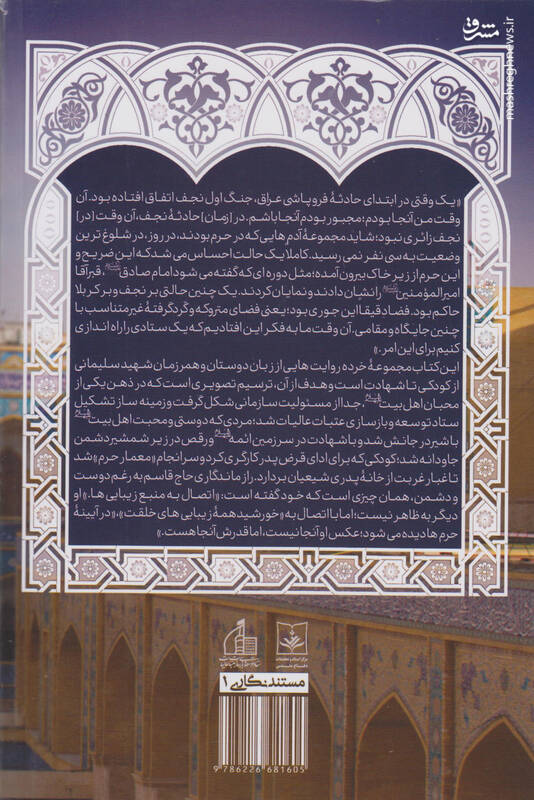 مشرق
mashreghnews.ir
«یک وقتی در ابتدای حادثهٔ فروپاشی عراق، جنگ اول نجف اتفاق افتاده بود. آن
وقت من آنجا بودم؛ مجبور بودم آنجا باشم. در [زمان] حادثهٔ نجف، آن وقت [در]
نجف زائری نبود؛ شاید مجموعهٔ آدم‌هایی که در حرم بودند، در روز، در شلوغ‌ترین
وضعیت به سی نفر نمی‌رسید. کاملاً یک حالت احساس می‌شد که این ضریح و
این حرم از زیر خاک بیرون آمده؛ مثل دوره‌ای که گفته می‌شود امام صادق، قبر آقا
امیرالمؤمنین را نشان دادند و نمایان کردند. یک چنین حالتی بر نجف و بر کربلا
حاکم بود. فضا دقیقا این جوری بود؛ یعنی فضای متروکه و گردگرفتهٔ غیرمتناسب با
چنین جایگاه و مقامی. آن وقت ما به فکر این افتادیم که یک ستادی را راه‌اندازی
کنیم برای این امر.»
این کتاب مجموعهٔ خرده روایت‌هایی از زبان دوستان و همرزمان شهید سلیمانی
از کودکی تا شهادت است و هدف از آن، ترسیم تصویری است که در ذهن یکی از
محبان اهل بیت، جدا از مسئولیت سازمانی شکل گرفت و زمینه‌ساز تشکیل
ستاد توسعه و بازسازی عتبات عالیات شد؛ مردی که دوستی و محبت اهل بیت
با شیر در جانش شد و با شهادت در سرزمین ائمه و رقص در زیر شمشیر دشمن
جاودانه شد؛ کودکی که برای ادای قرض پدر کارگری کرد و سرانجام «معمار حرم» شد
تا غبار غربت از خانهٔ پدری شیعیان بردارد. راز ماندگاری حاج قاسم به رغم دوست
و دشمن، همان چیزی است که خود گفته است: «اتصال به منبع زیبایی‌ها.» او
دیگر به ظاهر نیست؛ اما با اتصال به «خورشید همهٔ زیبایی‌های خلقت»، «در آیینهٔ
حرم‌ها دیده می‌شود؛ عکس او آنجا نیست، اما قدرش آنجا هست.»
مستندنگاری ۱
9 786226 681605